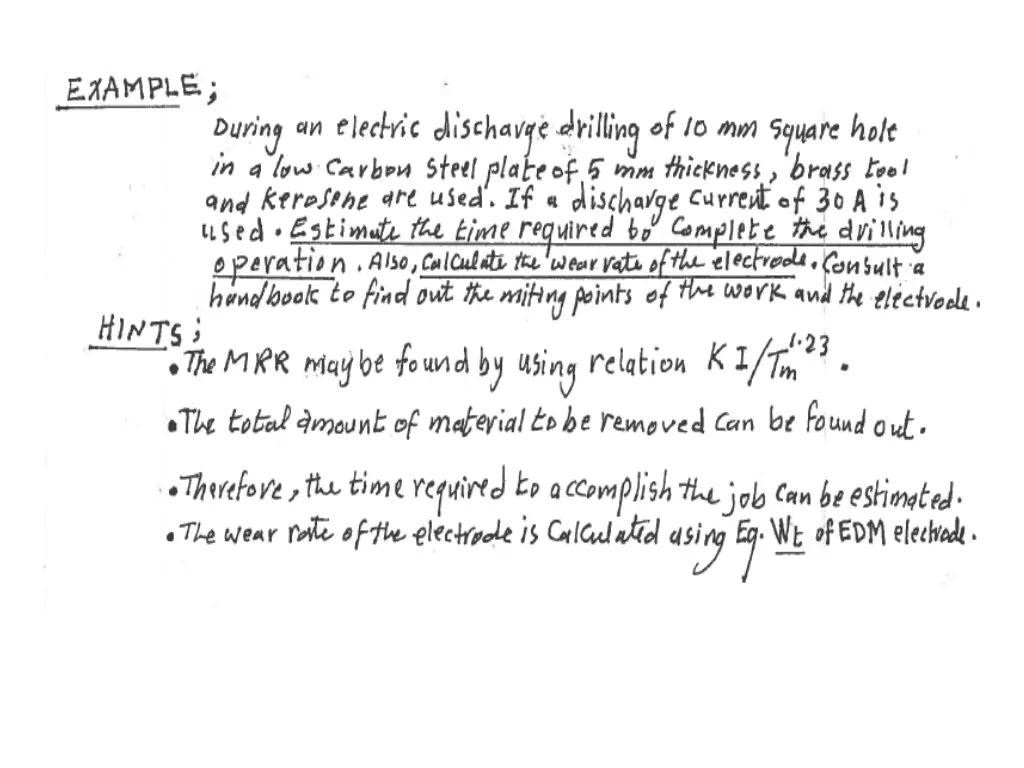 EXAMPLE;
During an electric discharge drilling of 10 mm square hole
in a low carbon steel plate of 5 mm thickness, brass tool
and kerosene are used. If a discharge current of 30 A is
used. Estimate the time required to complete the drilling
operation. Also, calculate the wear rate of the electrode. Consult a
handbook to find out the mlting points of the work and the electrode.
HINTS;
• The MRR may be found by using relation K I/Tm^1.23 .
• The total amount of material to be removed can be found out.
• Therefore, the time required to accomplish the job can be estimated.
• The wear rate of the electrode is calculated using Eq. Wt of EDM electrode.